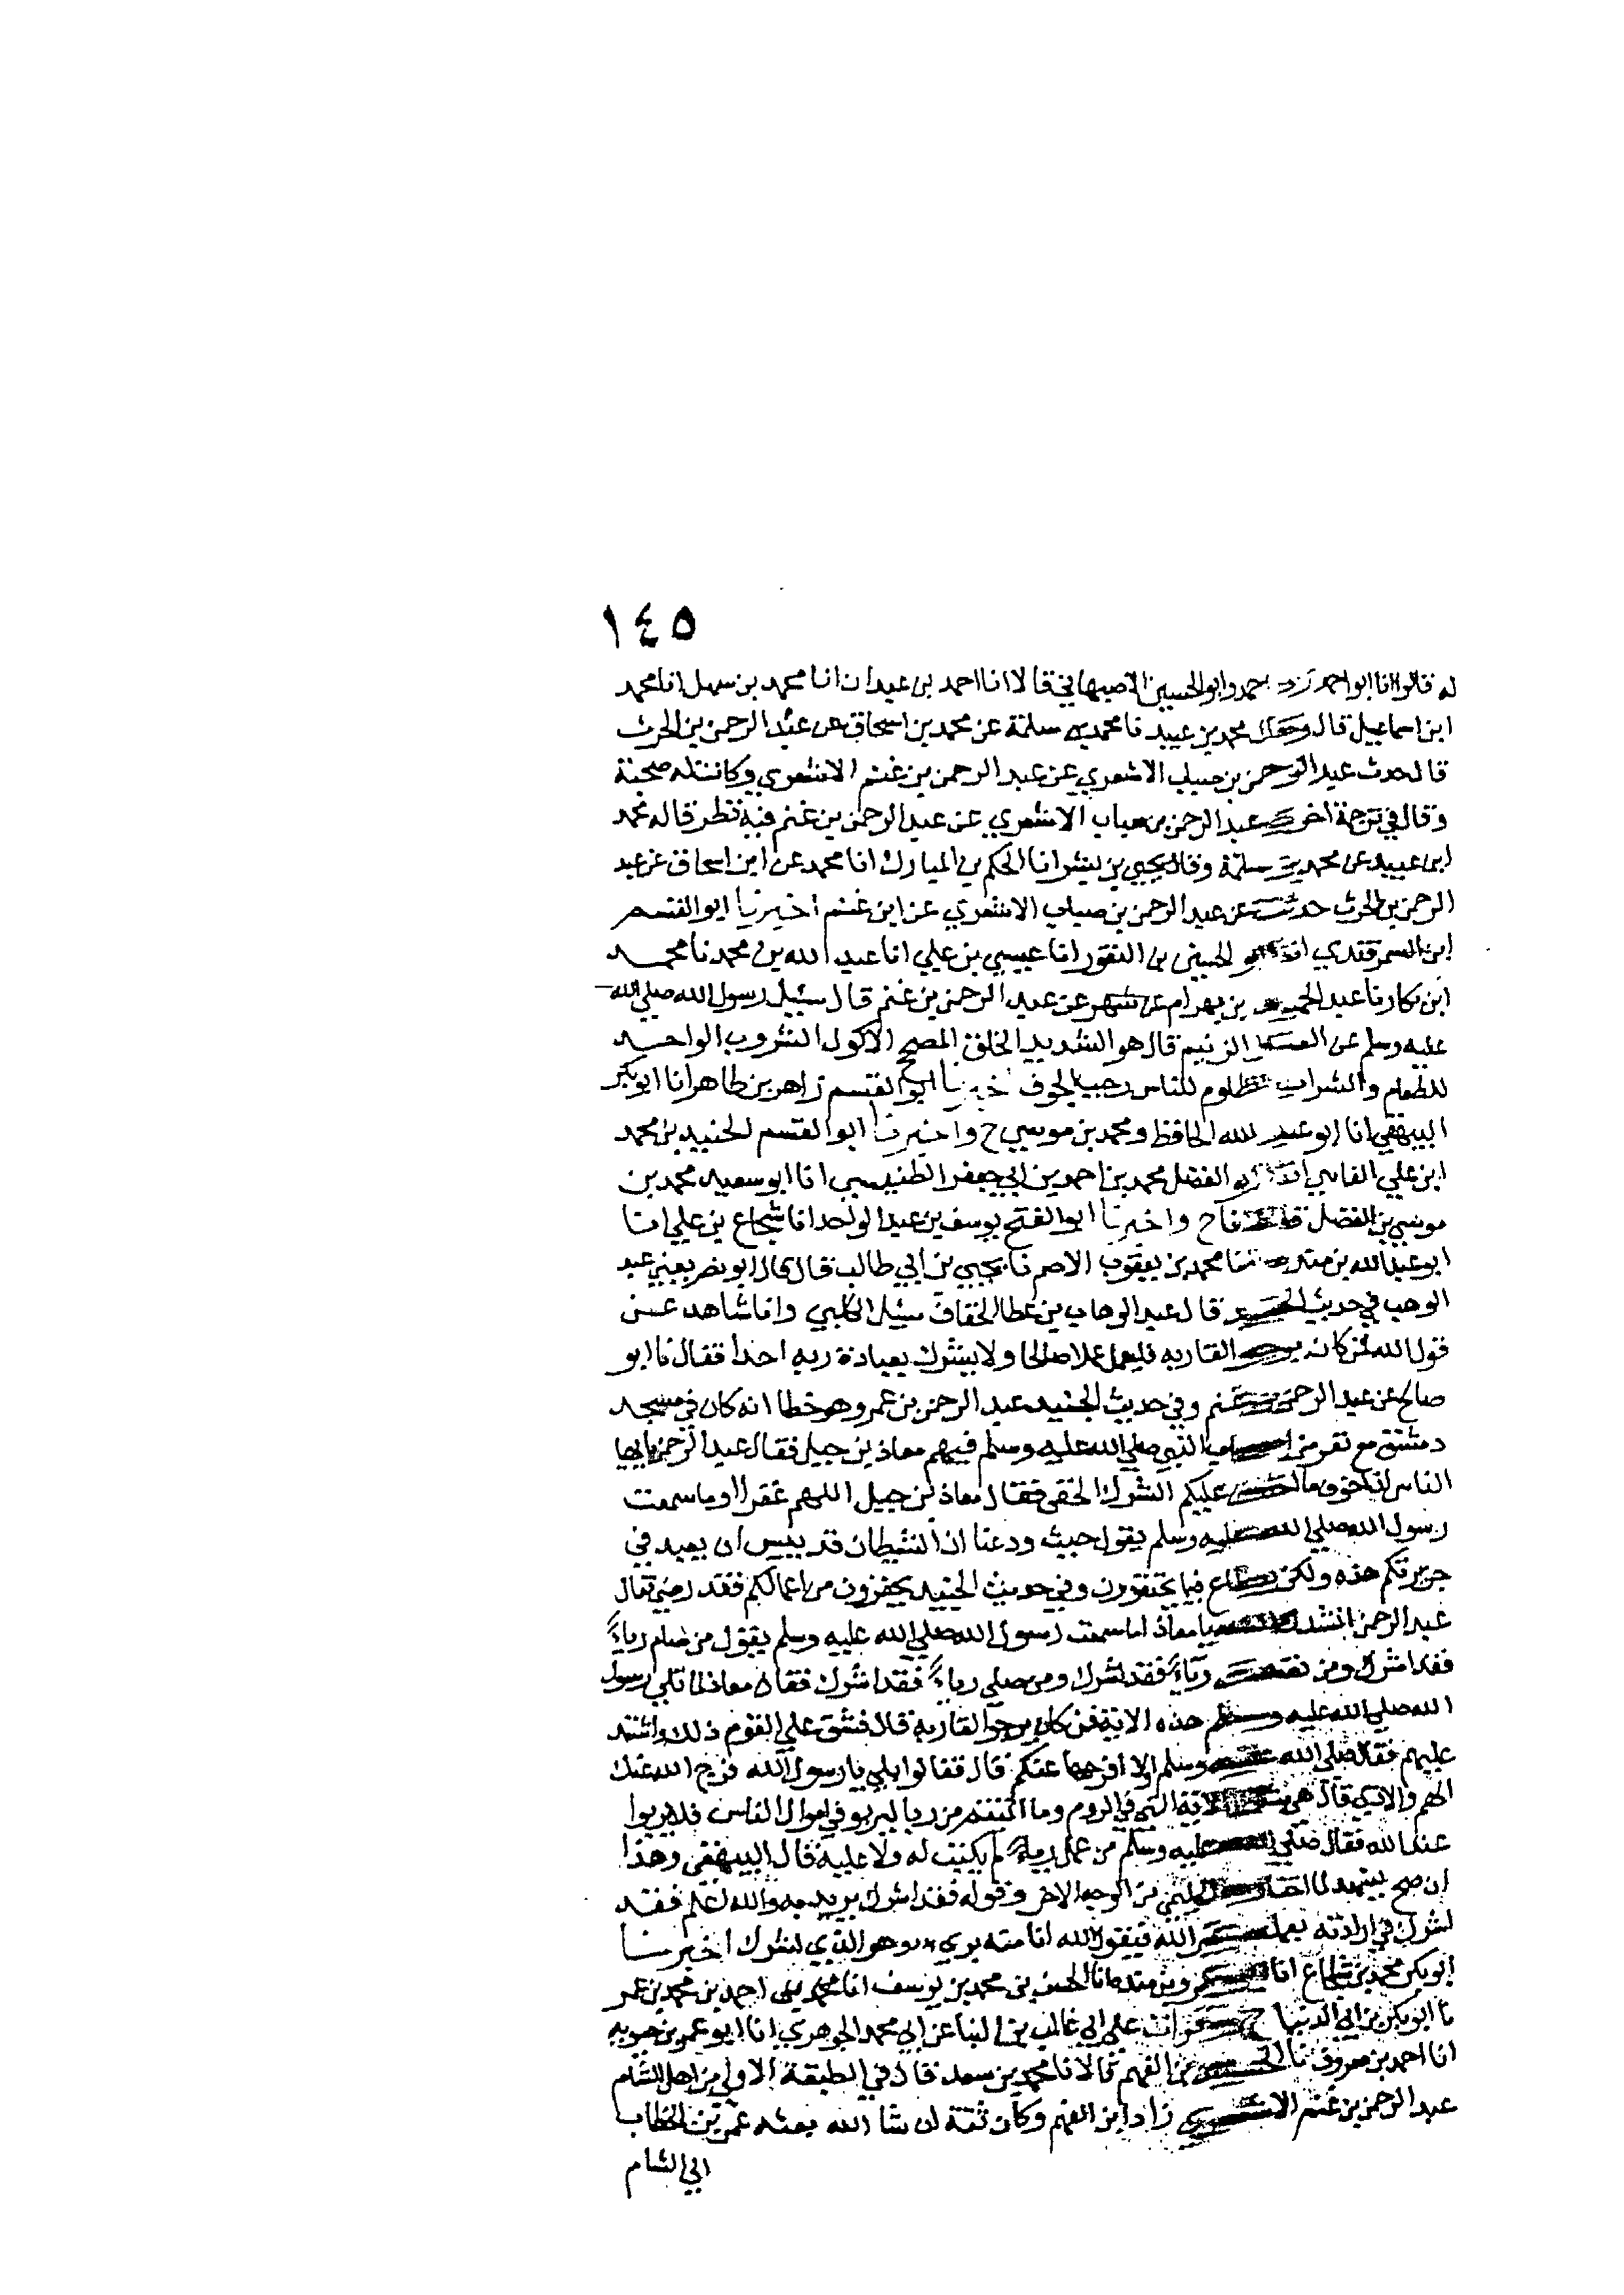 ١٤٥
له قالوا انا ابو احمد زاد احمد وابو الحسين الاصبهاني قالا انا احمد بن عبدان انا محمد بن سهل انا محمد
ابن اسماعيل قال وقال محمد بن عبيد نا محمد بن سلمة عن محمد بن اسحاق عن عبد الرحمن بن الحرث
قال حدثت عبد الرحمن بن ضباب الاشعري عن عبد الرحمن بن غنم الاشعري وكانت له صحبة
وقال في ترجمة اخرى عبد الرحمن بن ضباب الاشعري عن عبد الرحمن بن غنم فيه نظر قاله محمد
ابن عبيد عن محمد بن سلمة وقال يحيى بن بشر انا الحكم بن المبارك انا محمد عن ابن اسحاق عن عبد
الرحمن بن الحرث حدثت عن عبد الرحمن بن ضباب الاشعري عن ابن غنم اخبرنا ابو القسم
ابن السمرقندي انا ابو الحسين بن النقور انا عيسى بن علي انا عبد الله بن محمد نا محمد
ابن بكار نا عبد الحميد بن بهرام عن شهر عن عبد الرحمن بن غنم قال سئيل رسول الله صلي الله
عليه وسلم عن العتل الزنيم قال هو الشديد الخلق المصحح الاكول الشروب الواجد
للطعام والشراب ظلوم للناس رحب الجوف اخبرنا ابو القسم زاهر بن طاهر انا ابو بكر
البيهقي انا ابو عبد الله الحافظ ومحمد بن موسي ح واخبرنا ابو القسم الجنيد بن محمد
ابن علي القايني انا ابو الفضل محمد بن احمد بن ابي جعفر الطبسي انا ابو سعيد محمد بن
موسي بن الفضل ح واخبرنا ابو الفتح يوسف بن عبد الواحد انا شجاع بن علي انا
ابو عبد الله بن منده نا محمد بن يعقوب الاصم نا يحيى بن ابي طالب قال قال ابو نصر يعني عبد
الوهب في حديث الجنيد قال عبد الوهاب بن عطا الخفاف سئيل الكلبي وانا شاهد عن
قول الله فمن كان يرجو القا ربه فليعمل عملا صالحا ولا يشرك بعبادة ربه احدا فقال نا ابو
صالح عن عبد الرحمن بن غنم وفي حديث الجنيد عبد الرحمن بن عمر وهو خطا انه كان في مسجد
دمشق مع نفر من اصحاب النبي صلي الله عليه وسلم فيهم معاذ بن جبل فقال عبد الرحمن يا ايها
الناس ان اخوف ما اخاف عليكم الشرك الخفي فقال معاذ بن جبل اللهم غفرا اوما سمعت
رسول الله صلي الله عليه وسلم يقول حيث ودعنا ان الشيطان قد يييس ان يعبد في
جزيرتكم هذه ولكن يطاع فيما تحتقرون وفي حديث الجنيد تحقرون من اعمالكم فقد رضي فقال
عبد الرحمن انشدك الله يا معاذ اما سمعت رسول الله صلي الله عليه وسلم يقول من صام رياءً
فقد اشرك ومن تصدق رياءً فقد اشرك ومن صلي رياءً فقد اشرك فقال معاذ لما تلي رسول
الله صلي الله عليه وسلم هذه الاية فمن كان يرجو القا ربه قال فشق علي القوم ذلك واشتد
عليهم فقال صلي الله عليه وسلم اولا افرجها عنكم قال فقالوا بلي يا رسول الله فرج الله عنك
الهم والاذى قال هي مثل الاية التي في الروم وما اتيتم من ربا ليربو في اموال الناس فلا يربوا
عند الله فقال صلي الله عليه وسلم من عمل رياءً لم يكتب له ولا عليه قال البيهقي وهذا
ان صح يشهد لما اختاره الحليمي من الوجه الاخر وقوله فقد اشرك يريد به والله اعلم فقد
اشرك في ارادته بعمله غير الله فيقول الله انا منه بري وهو الذي اشرك اخبرنا
ابو بكر محمد بن شجاع انا ابو عمرو بن منده انا الحسن بن محمد بن يوسف انا احمد بن محمد بن عمر
نا ابو بكر بن ابي الدنيا ح وقرات علي ابي غالب بن البنا عن ابي محمد الجوهري انا ابو عمر بن حيويه
انا احمد بن معروف نا الحسين بن الفهم قالا نا محمد بن سعد قال في الطبقة الاولي من اهل الشام
عبد الرحمن بن غنم الاشعري زاد ابن الفهم وكان ثقة ان شا الله بعثه عمر بن الخطاب
الي الشام